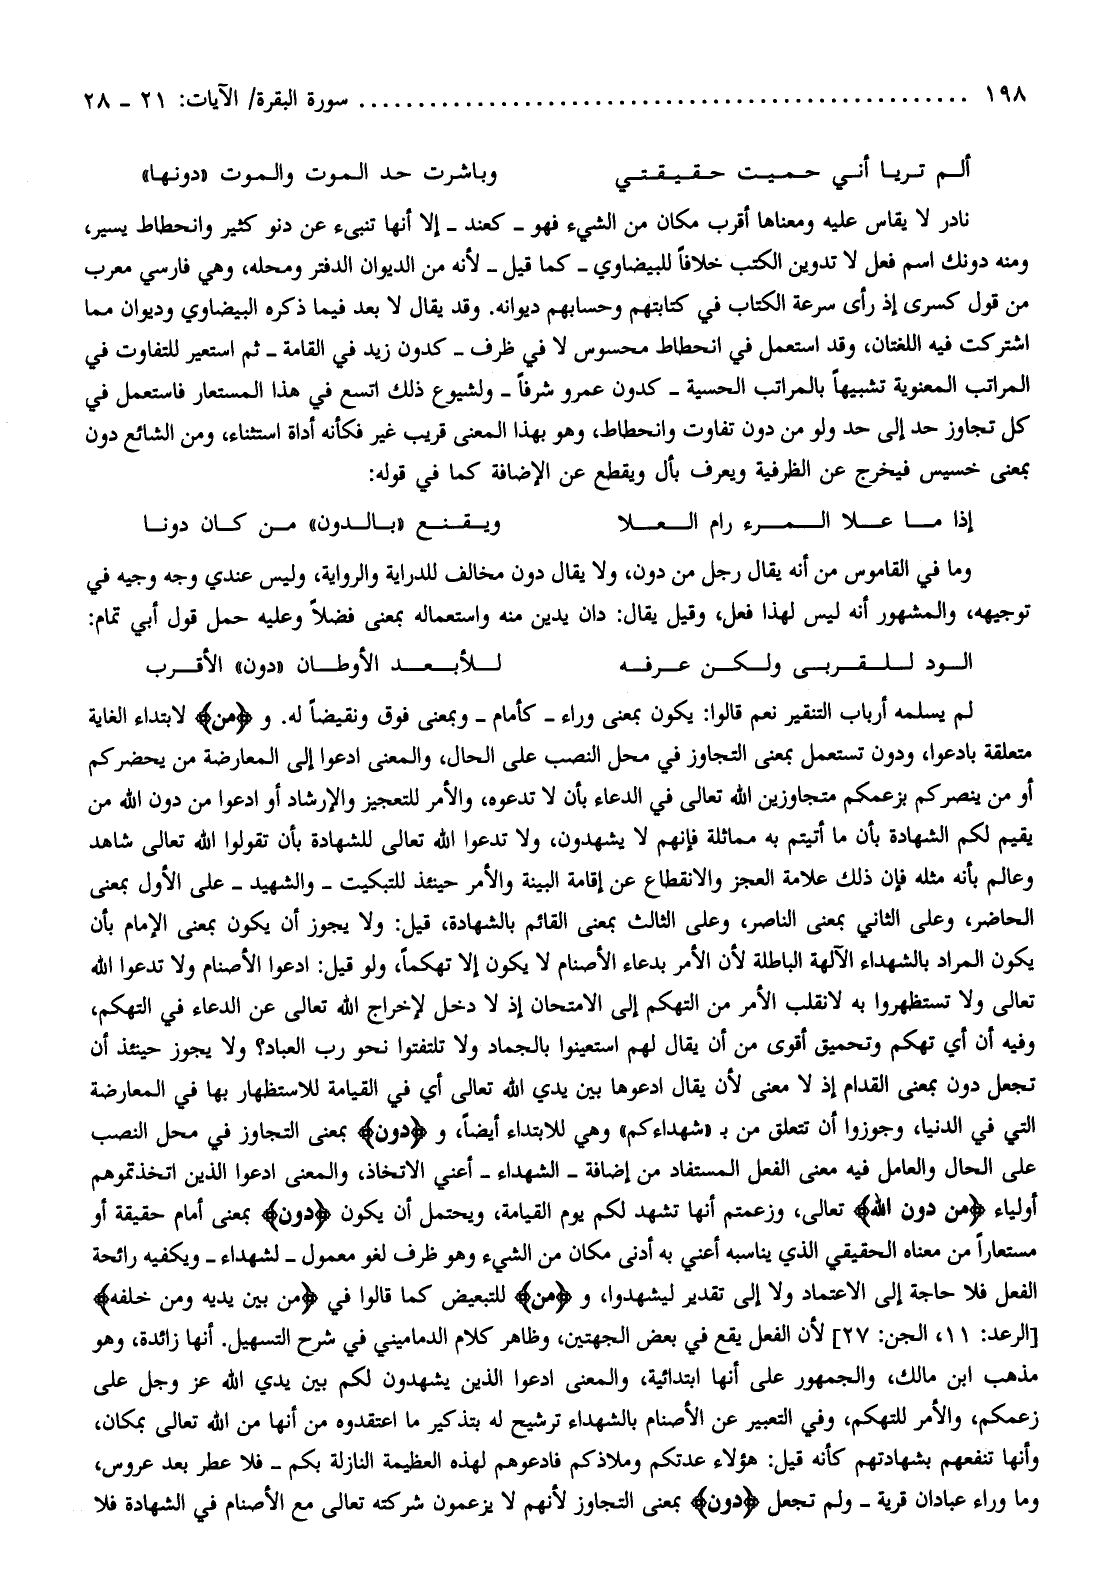 ١٩٨ .................................................... سورة البقرة/ الآيات: ٢١ ـ ٢٨
ألم تريا أني حميت حقيقتي وباشرت حد الموت والموت «دونها»
نادر لا يقاس عليه ومعناها أقرب مكان من الشيء فهو ـ كعند ـ إلا أنها تنبىء عن دنو كثير وانحطاط يسير،
ومنه دونك اسم فعل لا تدوين الكتب خلافاً للبيضاوي ـ كما قيل ـ لأنه من الديوان الدفتر ومحله، وهي فارسي معرب
من قول كسرى إذ رأى سرعة الكتاب في كتابتهم وحسابهم ديوانه. وقد يقال لا بعد فيما ذكره البيضاوي وديوان مما
اشتركت فيه اللغتان، وقد استعمل في انحطاط محسوس لا في ظرف ـ كدون زيد في القامة ـ ثم استعير للتفاوت في
المراتب المعنوية تشبيهاً بالمراتب الحسية ـ كدون عمرو شرفاً ـ ولشيوع ذلك اتسع في هذا المستعار فاستعمل في
كل تجاوز حد إلى حد ولو من دون تفاوت وانحطاط، وهو بهذا المعنى قريب غير فكأنه أداة استثناء، ومن الشائع دون
بمعنى خسيس فيخرج عن الظرفية ويعرف بأل ويقطع عن الإضافة كما في قوله:
إذا ما علا المرء رام العلا ويقنع «بالدون» من كان دونا
وما في القاموس من أنه يقال رجل من دون، ولا يقال دون مخالف للدراية والرواية، وليس عندي وجه وجيه في
توجيهه، والمشهور أنه ليس لهذا فعل، وقيل يقال: دان يدين منه واستعماله بمعنى فضلاً وعليه حمل قول أبي تمام:
الود للقربى ولكن عرفه للأبعد الأوطان «دون» الأقرب
لم يسلمه أرباب التنقير نعم قالوا: يكون بمعنى وراء ـ كأمام ـ وبمعنى فوق ونقيضاً له. و ﴿من﴾ لابتداء الغاية
متعلقة بادعوا، ودون تستعمل بمعنى التجاوز في محل النصب على الحال، والمعنى ادعوا إلى المعارضة من يحضركم
أو من ينصركم بزعمكم متجاوزين الله تعالى في الدعاء بأن لا تدعوه، والأمر للتعجيز والإرشاد أو ادعوا من دون الله من
يقيم لكم الشهادة بأن ما أتيتم به مماثلة فإنهم لا يشهدون، ولا تدعوا الله تعالى للشهادة بأن تقولوا الله تعالى شاهد
وعالم بأنه مثله فإن ذلك علامة العجز والانقطاع عن إقامة البينة والأمر حينئذ للتبكيت ـ والشهيد ـ على الأول بمعنى
الحاضر، وعلى الثاني بمعنى الناصر، وعلى الثالث بمعنى القائم بالشهادة، قيل: ولا يجوز أن يكون بمعنى الإمام بأن
يكون المراد بالشهداء الآلهة الباطلة لأن الأمر بدعاء الأصنام لا يكون إلا تهكماً، ولو قيل: ادعوا الأصنام ولا تدعوا الله
تعالى ولا تستظهروا به لانقلب الأمر من التهكم إلى الامتحان إذ لا دخل لإخراج الله تعالى عن الدعاء في التهكم،
وفيه أن أي تهكم وتحميق أقوى من أن يقال لهم استعينوا بالجماد ولا تلتفتوا نحو رب العباد؟ ولا يجوز حينئذ أن
تجعل دون بمعنى القدام إذ لا معنى لأن يقال ادعوها بين يدي الله تعالى أي في القيامة للاستظهار بها في المعارضة
التي في الدنيا، وجوزوا أن تتعلق من بـ «شهداءكم» وهي للابتداء أيضاً، و ﴿دون﴾ بمعنى التجاوز في محل النصب
على الحال والعامل فيه معنى الفعل المستفاد من إضافة ـ الشهداء ـ أعني الاتخاذ، والمعنى ادعوا الذين اتخذتموهم
أولياء ﴿من دون الله﴾ تعالى، وزعمتم أنها تشهد لكم يوم القيامة، ويحتمل أن يكون ﴿دون﴾ بمعنى أمام حقيقة أو
مستعاراً من معناه الحقيقي الذي يناسبه أعني به أدنى مكان من الشيء وهو ظرف لغو معمول ـ لشهداء ـ ويكفيه رائحة
الفعل فلا حاجة إلى الاعتماد ولا إلى تقدير ليشهدوا، و ﴿من﴾ للتبعيض كما قالوا في ﴿من بين يديه ومن خلفه﴾
[الرعد: ١١، الجن: ٢٧] لأن الفعل يقع في بعض الجهتين، وظاهر كلام الدماميني في شرح التسهيل. أنها زائدة، وهو
مذهب ابن مالك، والجمهور على أنها ابتدائية، والمعنى ادعوا الذين يشهدون لكم بين يدي الله عز وجل على
زعمكم، والأمر للتهكم، وفي التعبير عن الأصنام بالشهداء ترشيح له بتذكير ما اعتقدوه من أنها من الله تعالى بمكان،
وأنها تنفعهم بشهادتهم كأنه قيل: هؤلاء عدتكم وملاذكم فادعوهم لهذه العظيمة النازلة بكم ـ فلا عطر بعد عروس،
وما وراء عبادان قرية ـ ولم تجعل ﴿دون﴾ بمعنى التجاوز لأنهم لا يزعمون شركته تعالى مع الأصنام في الشهادة فلا